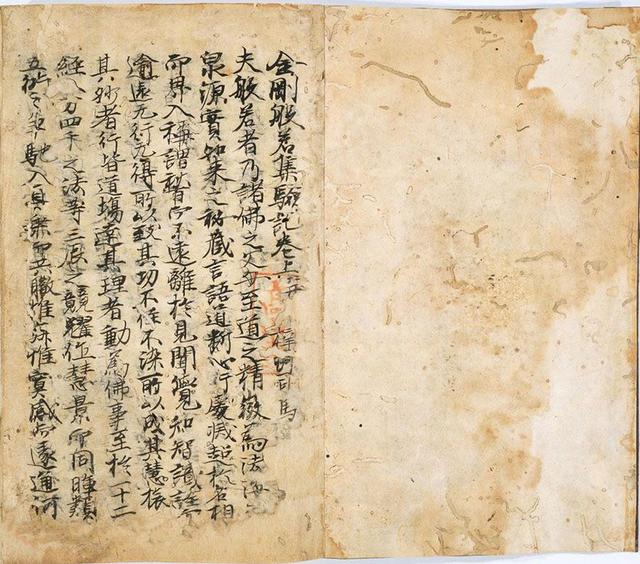 金剛般若集驗記卷上并
夫般若者乃諸佛之父母至道之精微為法海之
泉源實如來之秘藏言語道斷心行處滅超於名相
而界入稱謂暫而不遠離於見聞覺知智識
逾遠元行元得所以致其功不住不染所以成其慧
其妙者行皆道場率其理者動為佛事至於十二
經八万四千之法等三辰之競耀慧景而同暉類
馳入真乘而惟寂惟寞感而遂通河